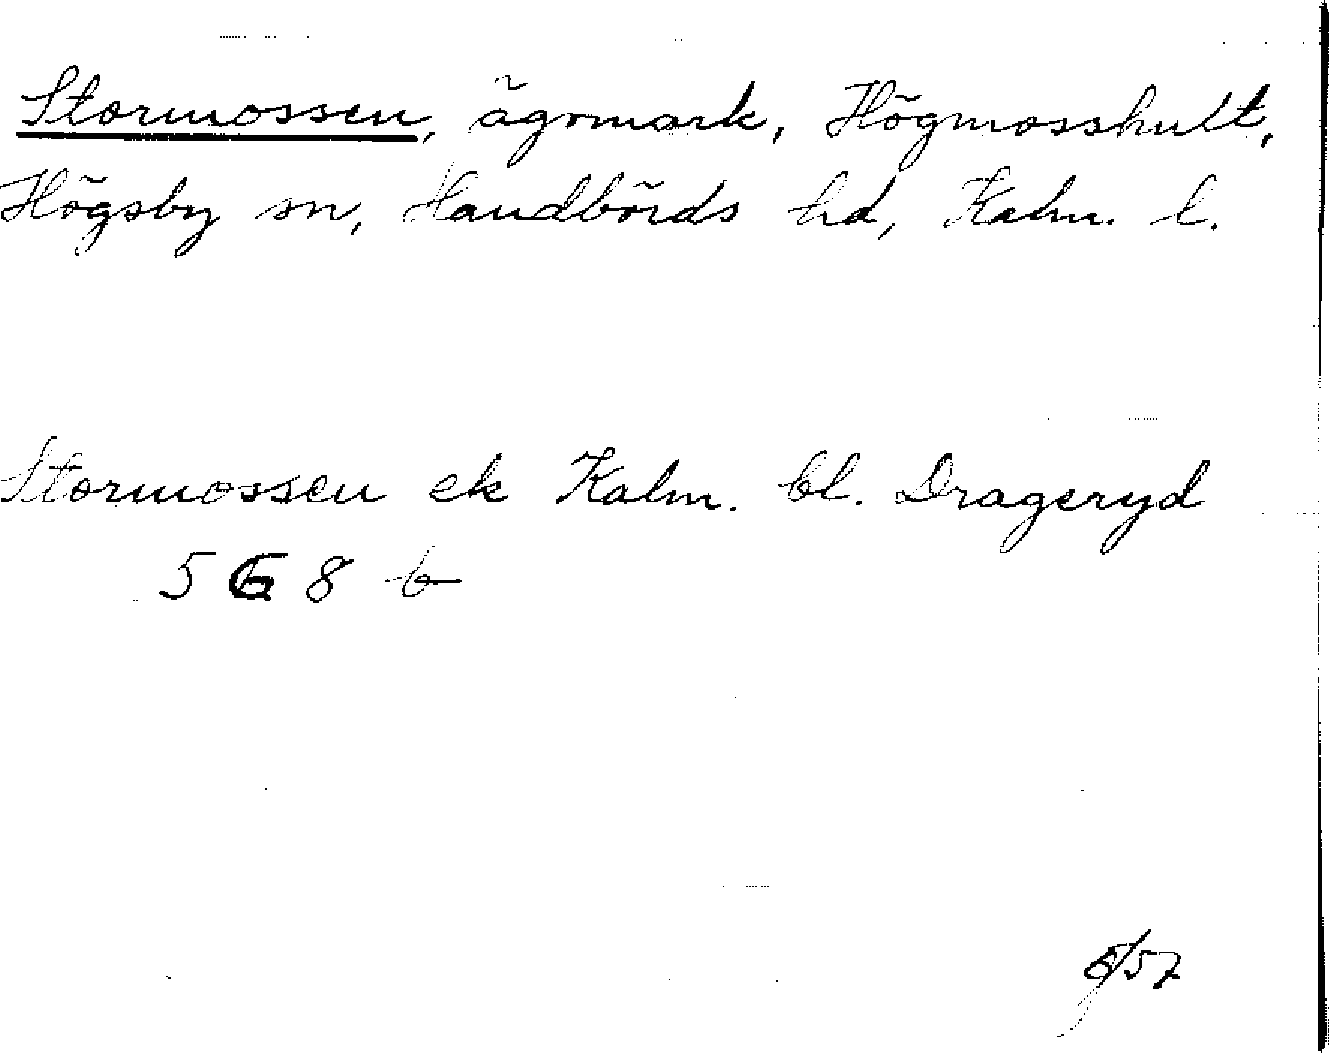 Stormossen, ägomark, Högmosshult,
Högsby sn, Handbörds hd, Kalm. l.
Stormossen ek Kalm. bl. Drageryd
5 G 8 b